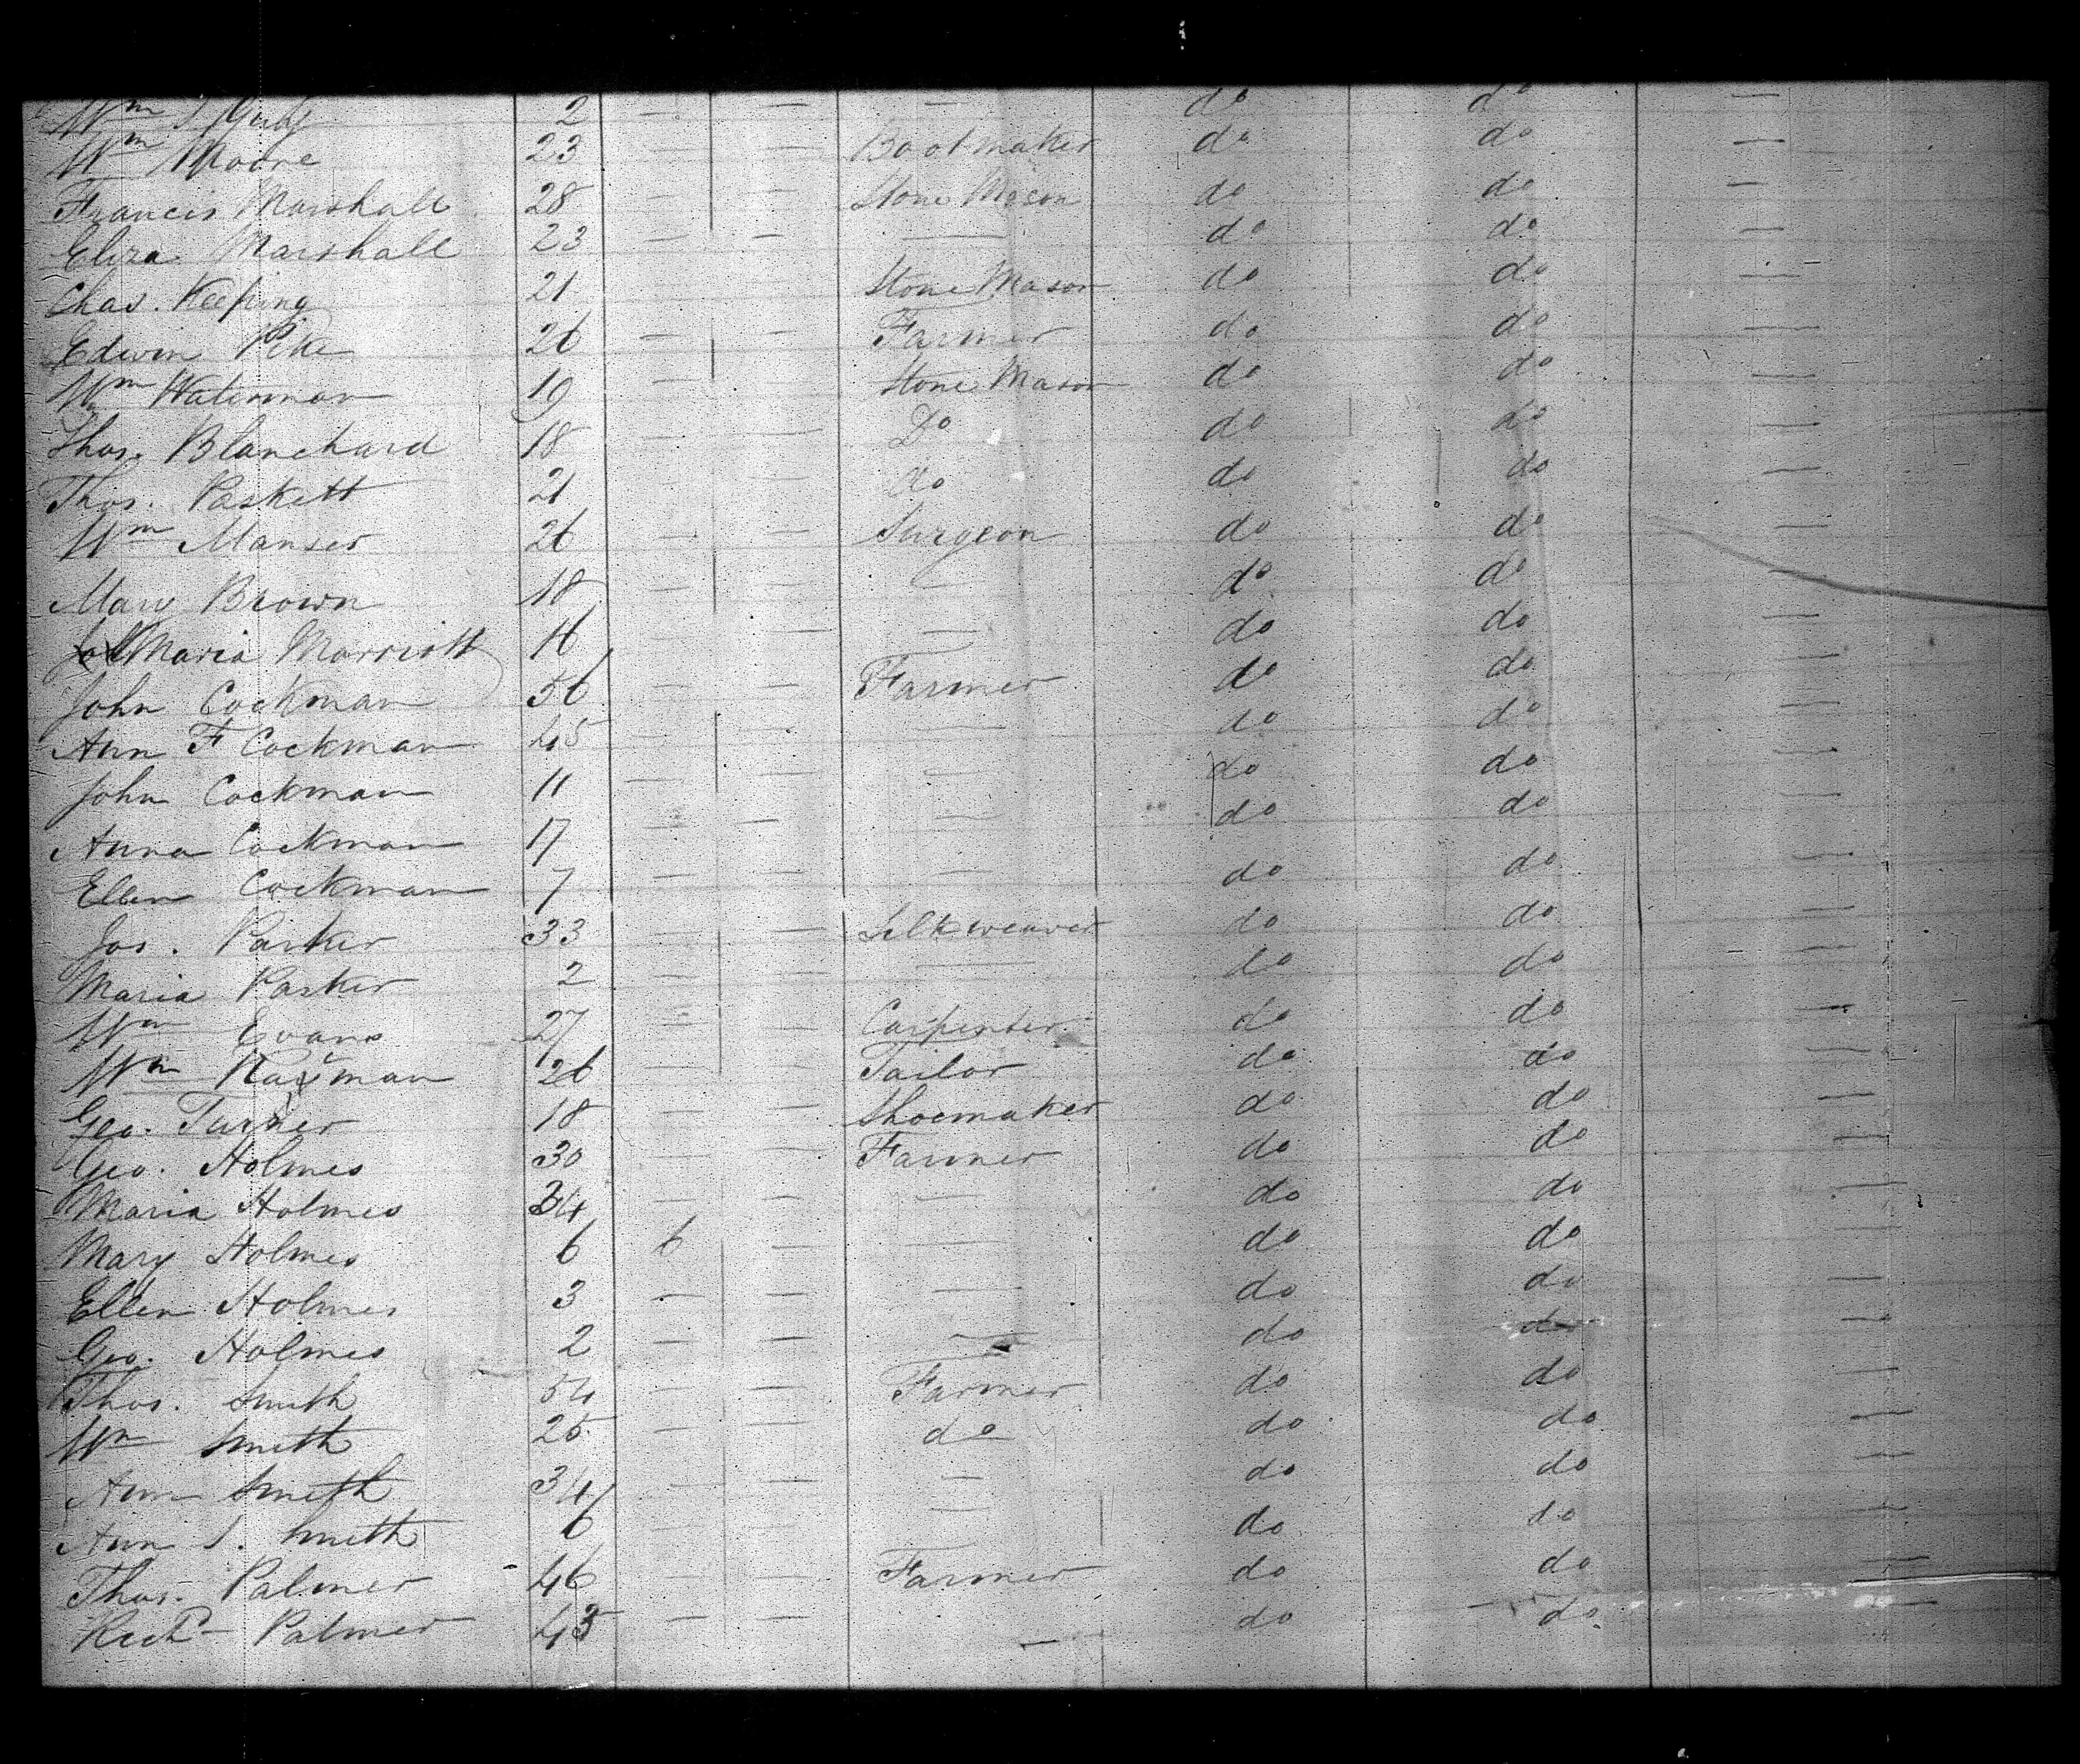 Wm 2 — — — do do —
Wm Moore 23 — — Bootmaker do do —
Francis Marshall 28 — — Stone Mason do do —
Eliza Marshall 23 — — — do do —
Chas. Keeping 21 — — Stone Mason do do —
Edwin Pike 26 — — Farmer do do —
Wm Waterman 19 — — Stone Mason do do —
Thos. Blanchard 18 — — Do do do —
Thos. Paskett 21 — — do do do —
Wm Manser 26 — — Surgeon do do —
Mary Brown 18 — — — do do —
Maria Marriott 16 — — — do do —
John Cockman 56 — — Farmer do do —
Ann F Cockman 45 — — — do do —
John Cockman 11 — — — do do —
Anna Cockman 17 — — — do do —
Ellen Cockman 7 — — — do do —
Jos. Parker 33 — — Silkweaver do do —
Maria Parker 2 — — — do do —
Wm Evans 27 — — Carpenter do do —
Wm 26 — — Tailor do do —
Geo. Turner 18 — — Shoemaker do do —
Geo. Holmes 30 — — Farmer do do —
Maria Holmes 34 — — — do do —
Mary Holmes 6 6 — — do do —
Ellen Holmes 3 — — — do do —
Geo. Holmes 2 — — — do do —
Thos. Smith 54 — — Farmer do do —
Wm Smith 25 — — do do do —
Ann Smith 34 — — — do do —
Ann S. Smith 6 — — — do do —
Thos. Palmer 46 — — Farmer do do —
Palmer 43 — — — do do —